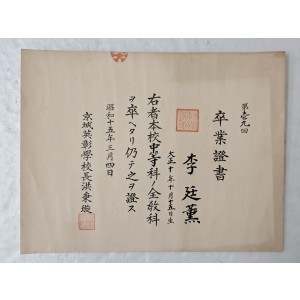 第壱九回
卒業證書
李廷薫
大正十年十月十五日生
右者本校中等科ノ全教科
ヲ卒ヘタリ仍テ之ヲ證ス
昭和十五年三月四日
京城英彰學校長洪秉璇